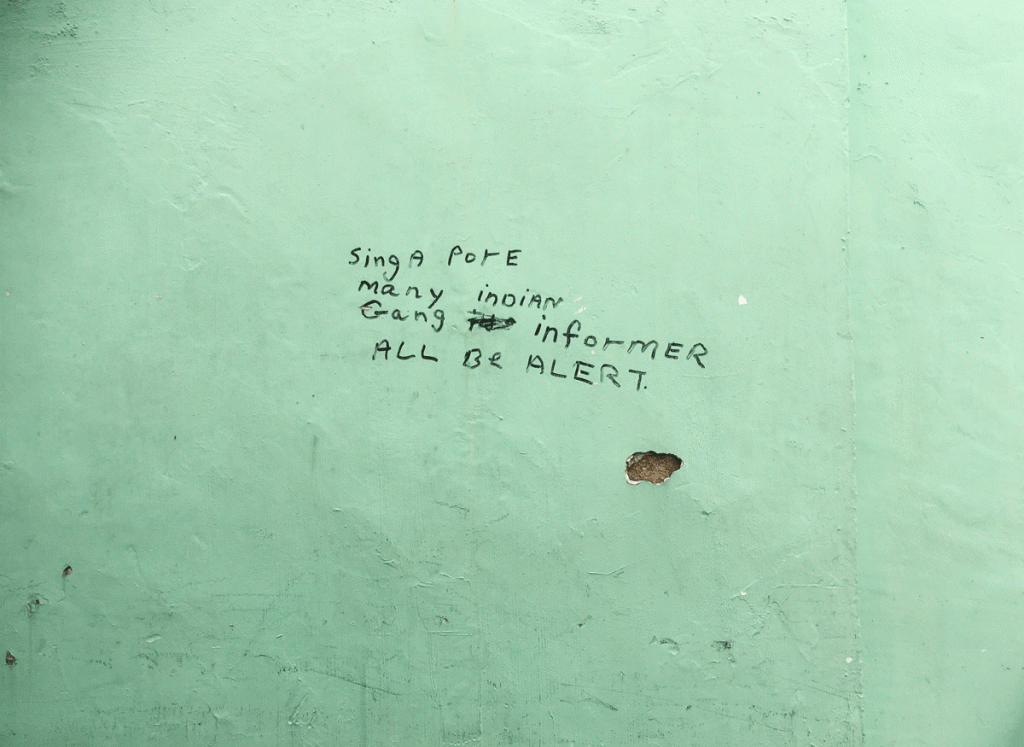 Sing A PorE
many inDiAN
Gang informER
ALL Be ALERT.